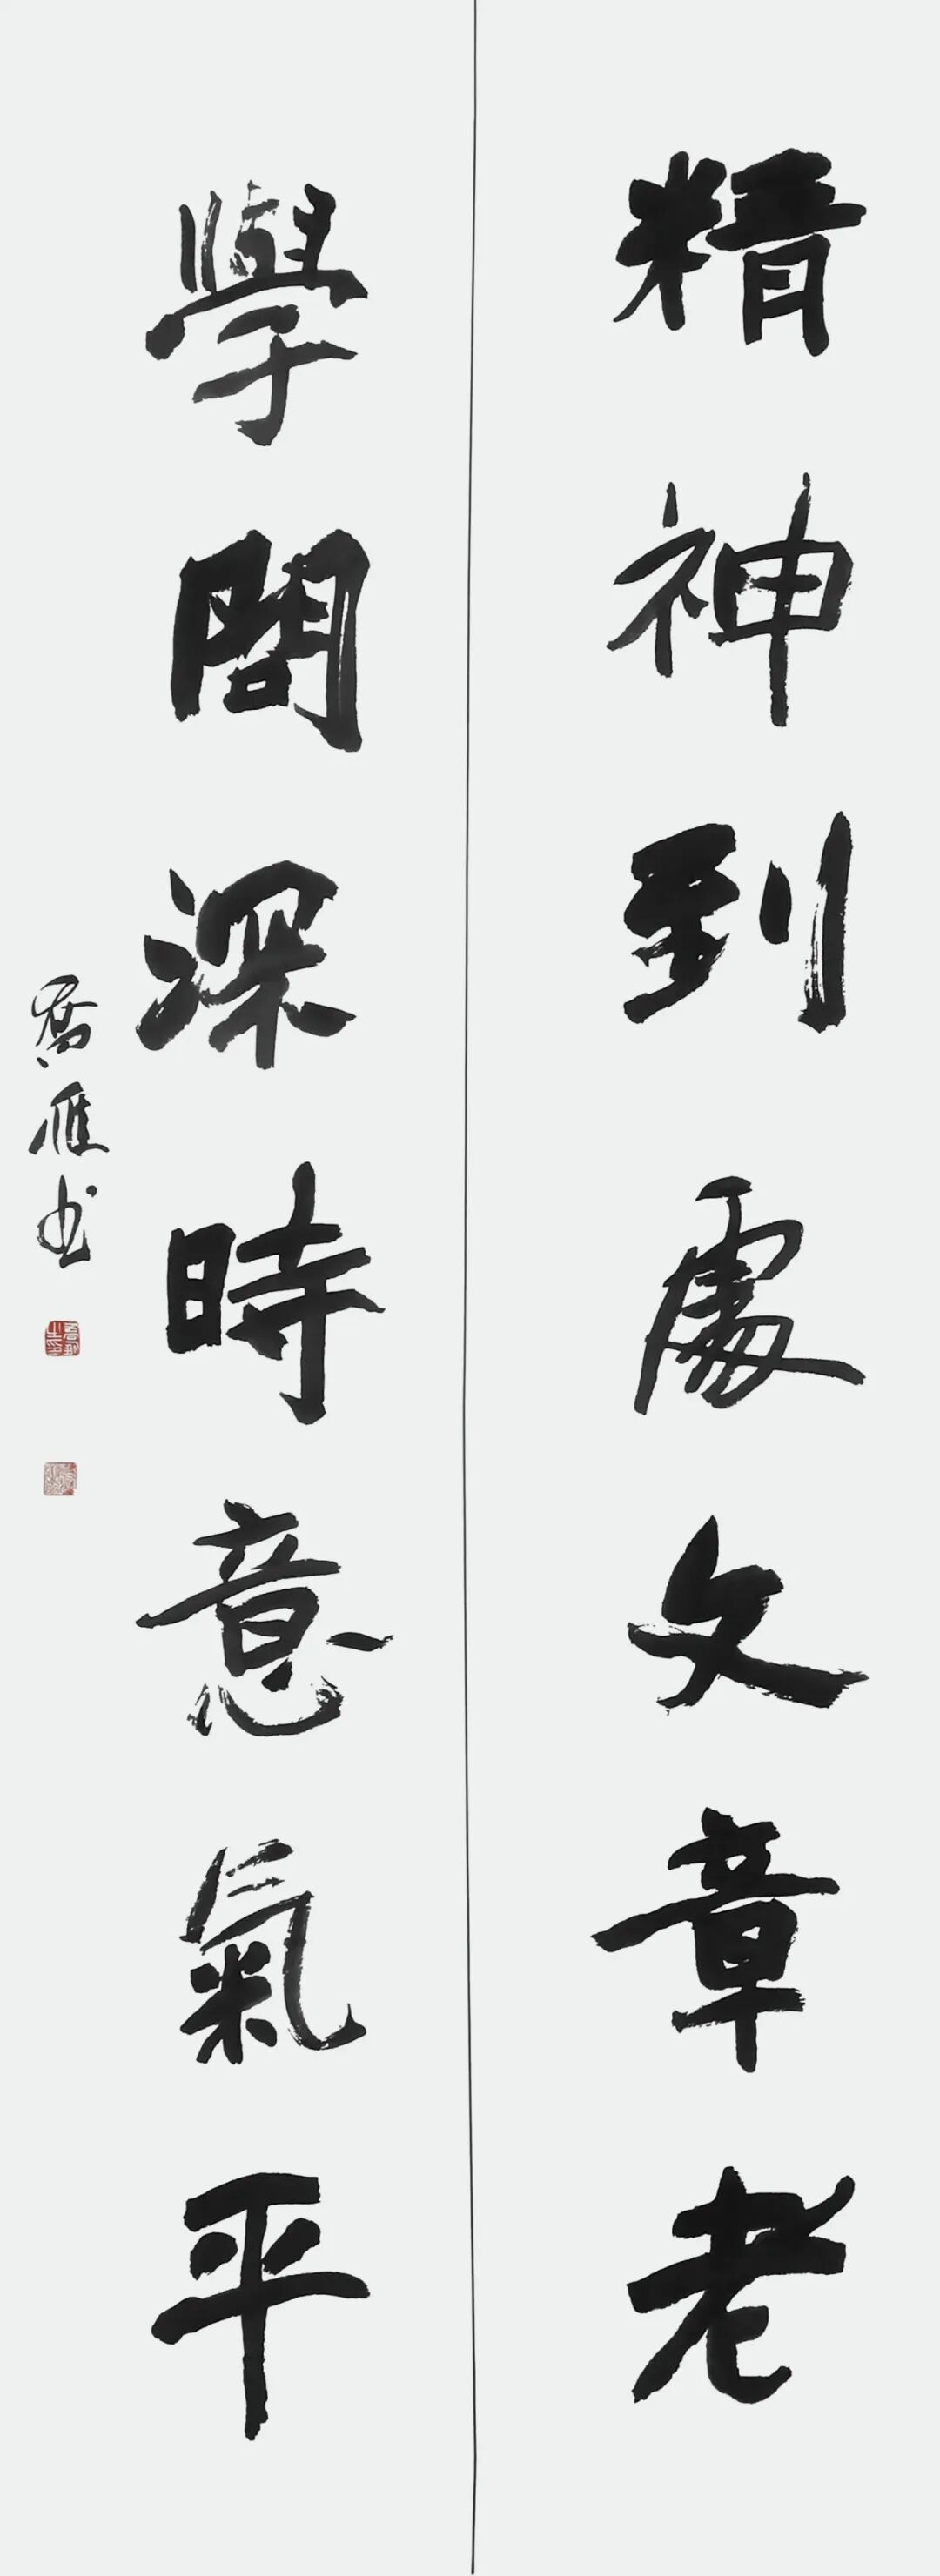 精神到處文章老
學問深時意氣平
喬雁書